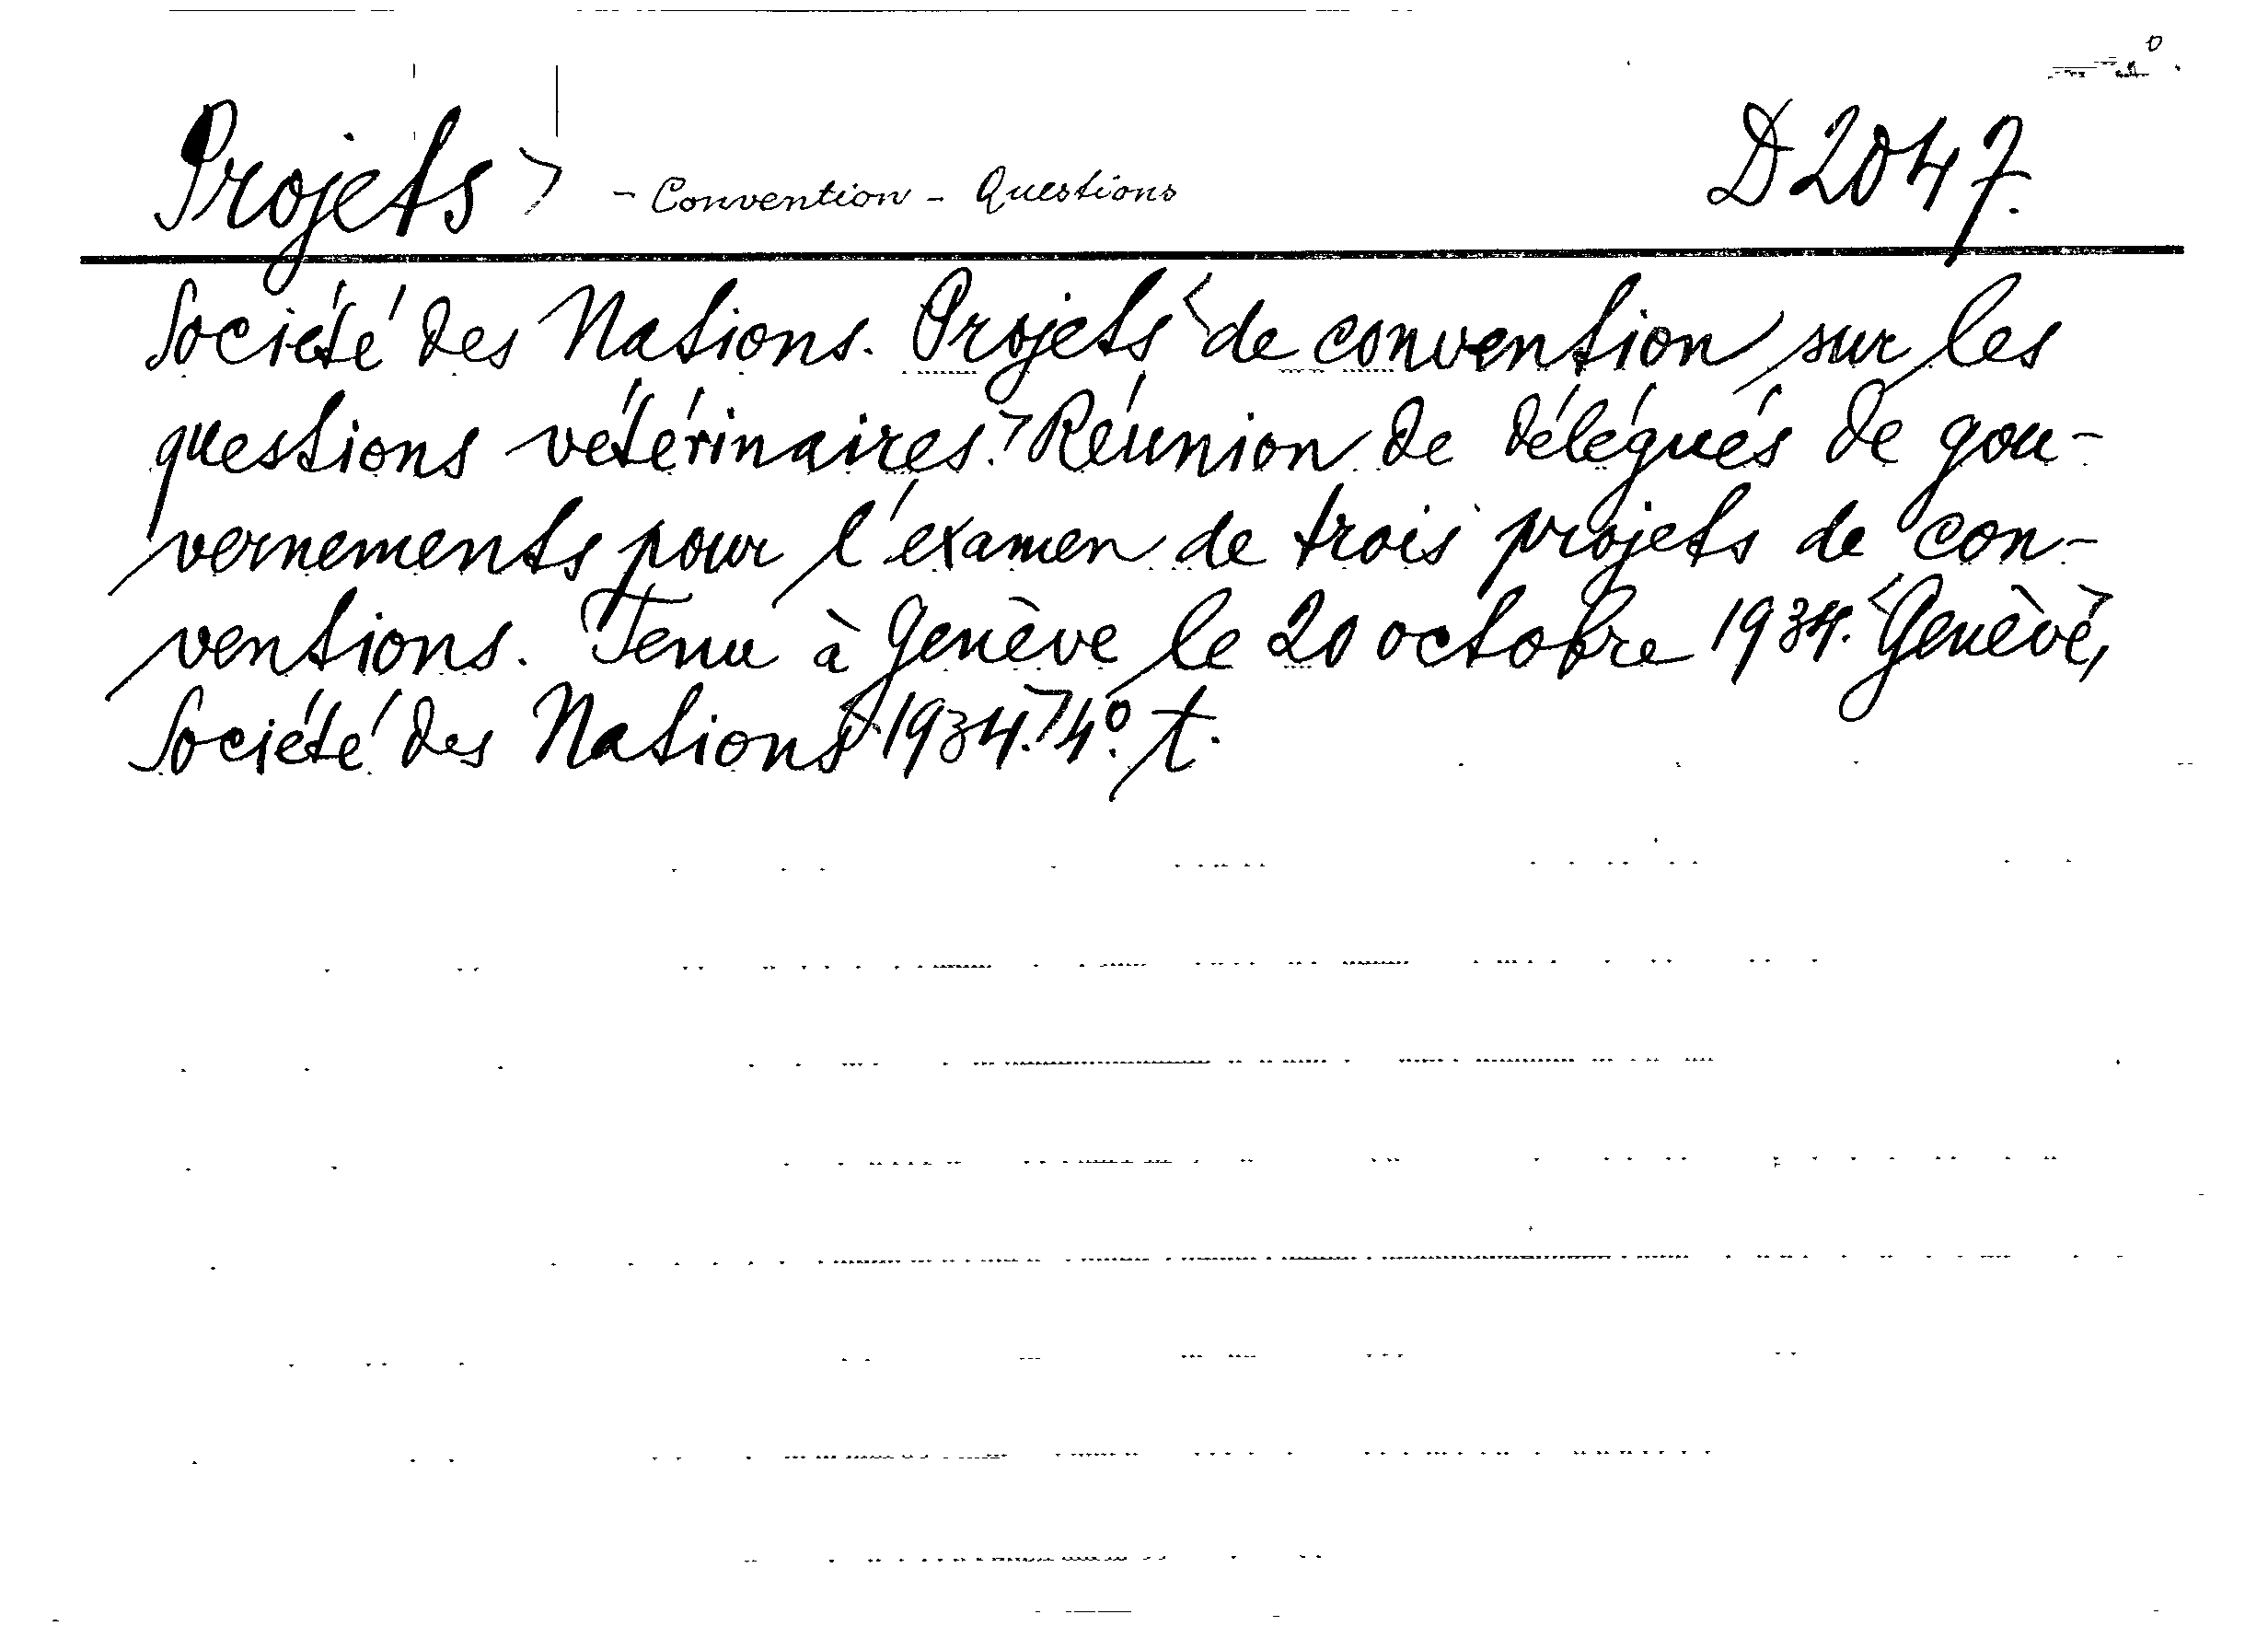 Projets > - Convention - Questions D 2047.
Société des Nations. Projets < de convention sur les
questions vétérinaires. > Réunion de délégués de gou-
vernements pour l'examen de trois projets de con-
ventions. Tenu à Genève le 20 octobre 1934. < Genève, >
Société des Nations < 1934. > 4°. t.